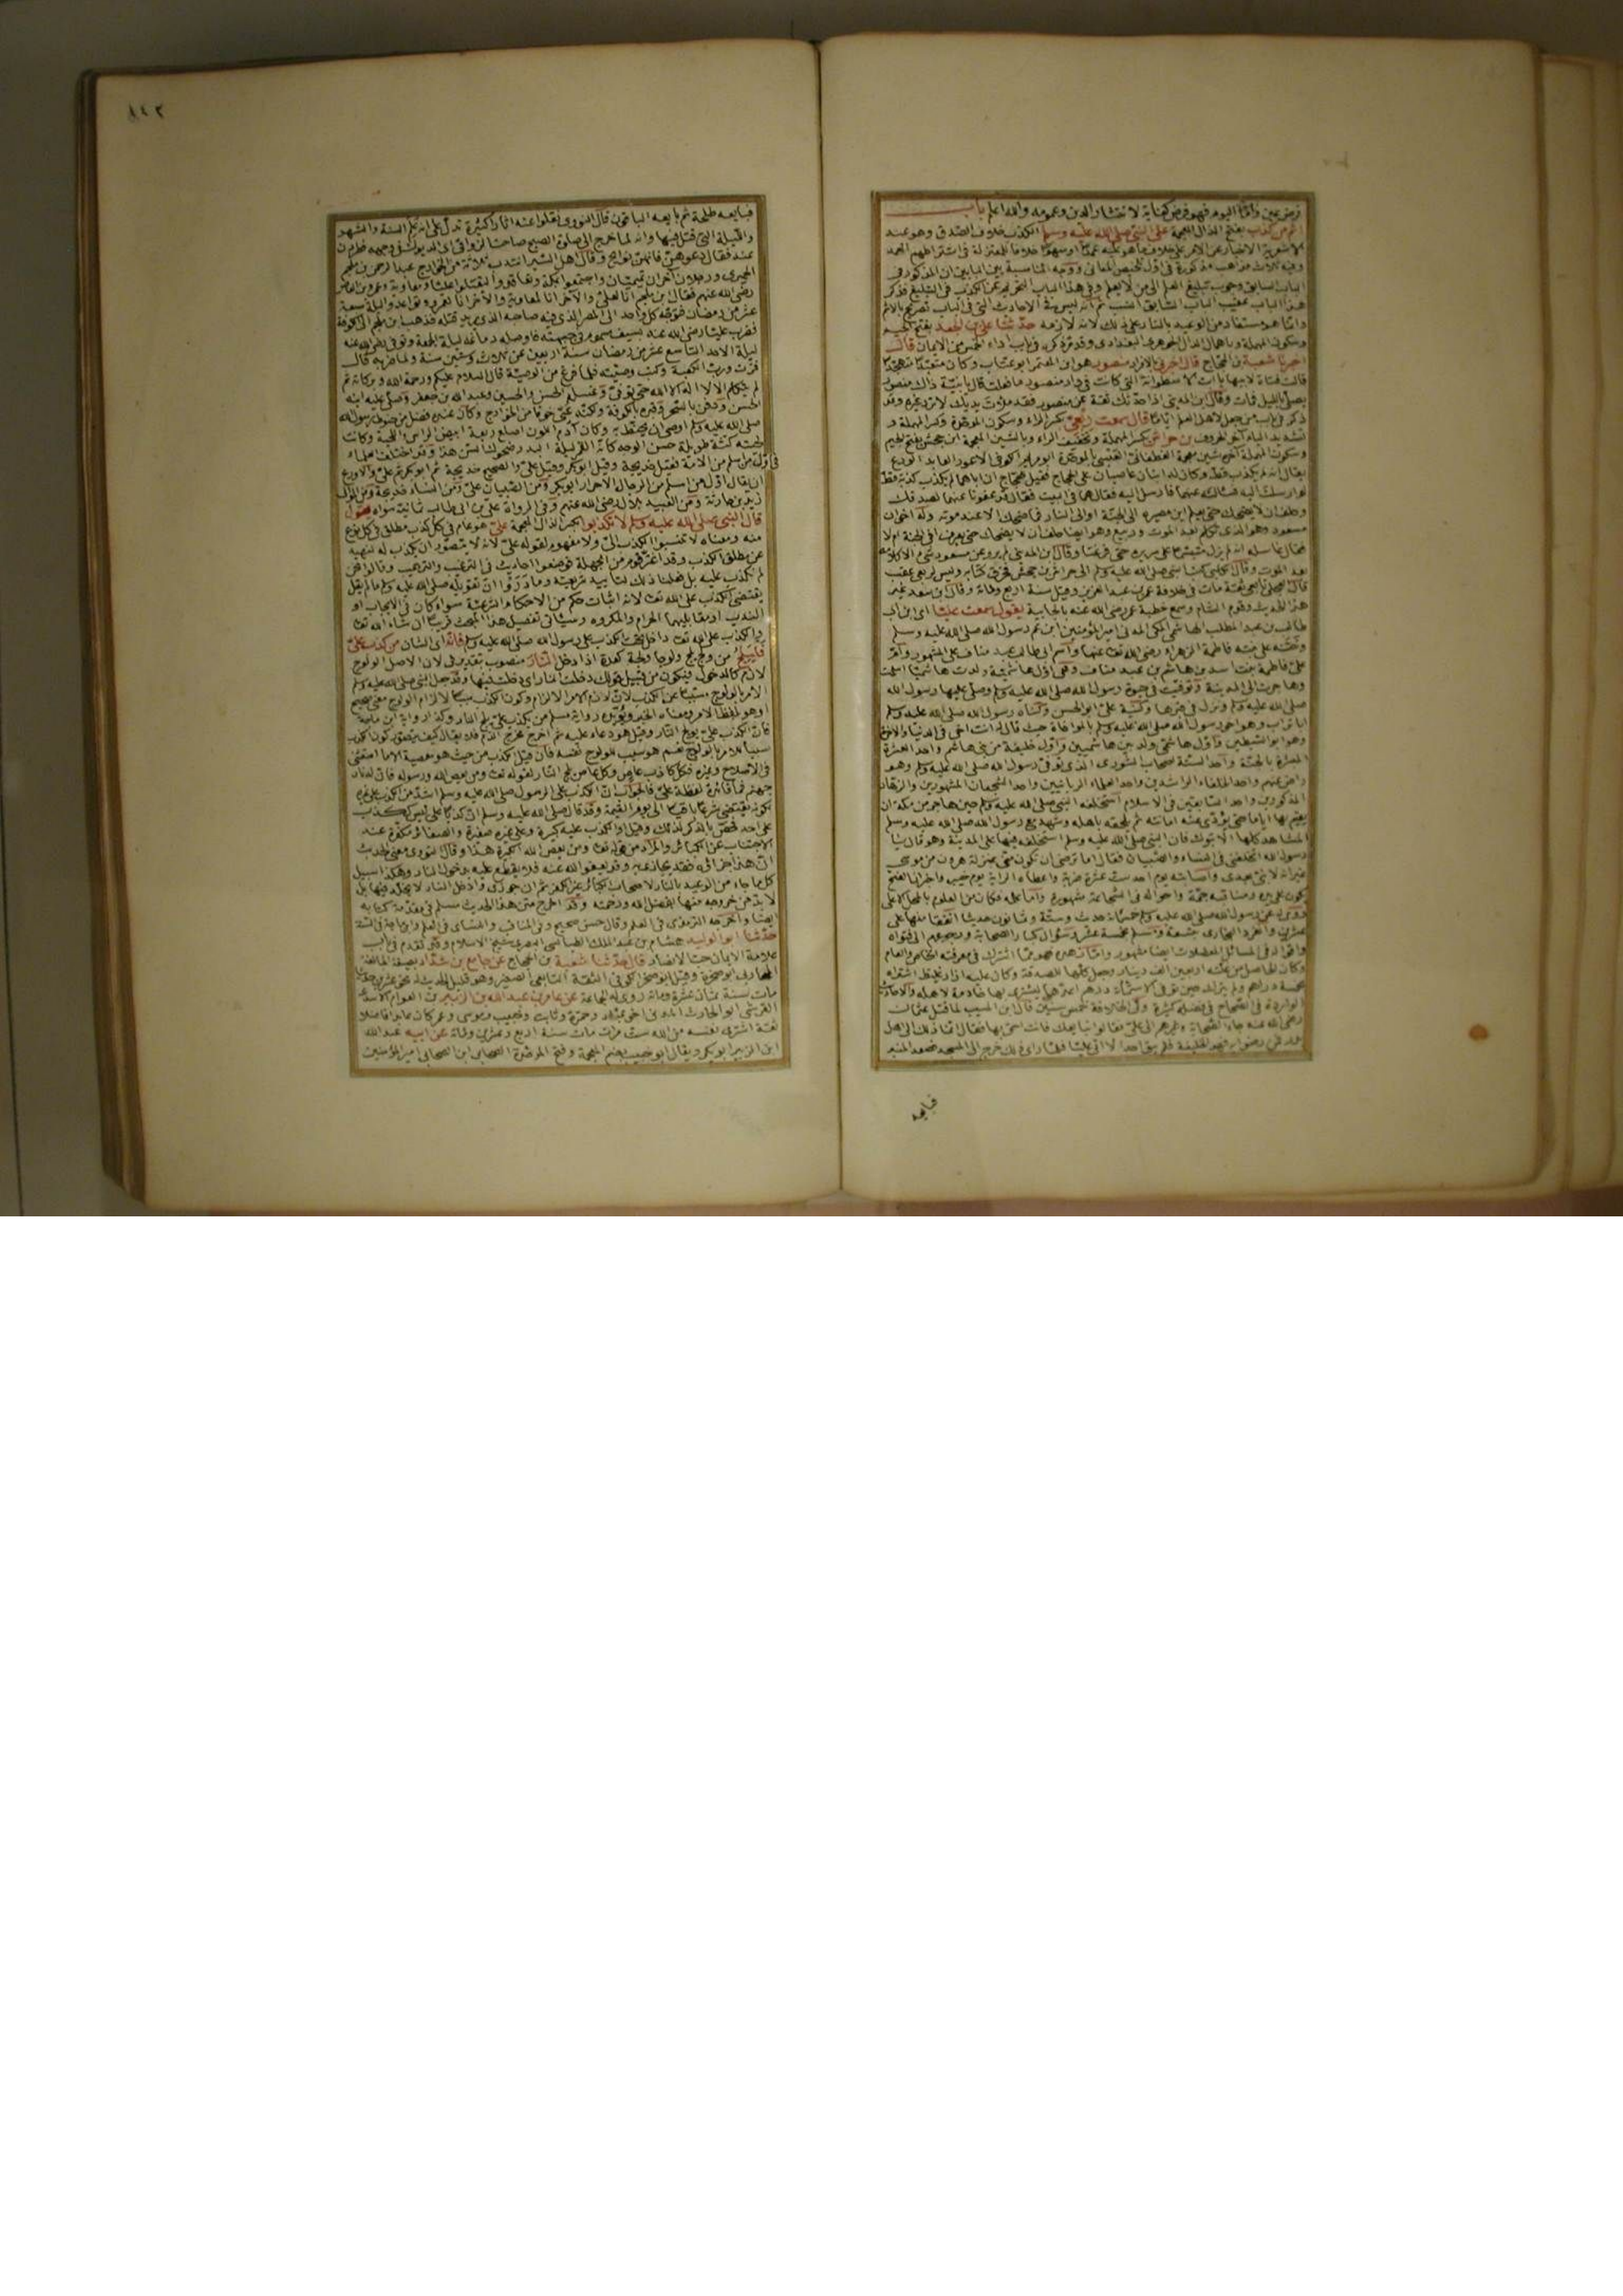 فرض عين واما اليوم فهو فرض كفاية لانتشار الدين وعمومه والله اعلم باب
اثم من كذب بفتح الذال المعجمة على النبي صلى الله عليه وسلم الكذب خلاف الصدق وهو عند
الاشعرية الاخبار عن الامر على خلاف ما هو عليه عمدا او سهوا خلافا للمعتزلة في اشتراطهم العمد
وفيه ثلاث مذاهب مذكورة في اول تلخيص المعاني ووجه المناسبة بين البابين ان المذكور في
الباب السابق وجوب تبليغ العلم الى من لا يعلم وفي هذا الباب التحريم عن الكذب في التبليغ فذكر
هذا الباب عقيب الباب السابق انسب ثم انه ليس في الاحاديث التي في الباب تصريح بالاثم
وانما هو مستفاد من الوعيد بالنار على ذلك لانه لازمه حدثنا علي بن الجعد بفتح الجيم
وسكون المهملة وباهمال الدال الجوهري البغدادي وقد مر ذكره في باب اداء الخمس من الايمان قال
اخبرنا شعبة بن الحجاج قال اخبرني بالافراد منصور هو ابن المعتمر ابو عتاب وكان متعبدا متهجدا
قالت فتاة لابيها يا ابت الاسطوانة التي كانت في دار منصور ما فعلت قال يا بنية ذاك منصور
يصلي بالليل فمات وقال ابن المديني اذا حدثك ثقة عن منصور فقد ملأت يديك لا تريد غيره وقد
ذكر في باب من جعل لاهل العلم اياما قال سمعت ربعي بكسر الراء وسكون الموحدة وكسر المهملة و
تشديد الياء آخر الحروف بن حراش بكسر المهملة وتخفيف الراء وبالشين المعجمة ابن جحش بفتح الجيم
وسكون المهملة آخره شين معجمة الغطفاني العبسي بالموحدة ابو مريم الكوفي الاعور العابد الورع
يقال انه لم يكذب قط وكان له ابنان عاصيان على الحجاج فقيل للحجاج ان اباهما لم يكذب كذبة قط
لو ارسلت اليه فسألته عنهما فارسل اليه فقال هما في البيت فقال قد عفونا عنهما لصدقك
وحلف ان لا يضحك حتى يعلم اين مصيره الى الجنة او الى النار فما ضحك الا عند موته وله اخوان
مسعود وهو الذي تكلم بعد الموت وربيع وهو ايضا حلف ان لا يضحك حتى يعرف أفي الجنة ام لا
فقال غاسله انه لم يزل متبسما على سريره حتى فرغنا وقال ابن المديني لم يرو عن مسعود شيء الا كلامه
بعد الموت وقال الكلبي كتب النبي صلى الله عليه وسلم الى حراش بن جحش فحرق كتابه وليس لربعي عقب
قال العجلي تابعي ثقة مات في خلافة عمر بن عبد العزيز وقيل سنة اربع ومائة وقال ابن سعد غير
هذا الحديث وقدم الشام وسمع خطبة عمر رضي الله عنه بالجابية يقول سمعت عليا اي ابن ابي
طالب بن عبد المطلب الهاشمي المكي المدني امير المؤمنين ابن عم رسول الله صلى الله عليه وسلم
وختنه على بنته فاطمة الزهراء رضي الله تعالى عنها واسم ابي طالب عبد مناف على المشهور وام
علي فاطمة بنت اسد بن هاشم بن عبد مناف وهي اول هاشمية ولدت هاشميا اسلمت
وهاجرت الى المدينة وتوفيت في حيوة رسول الله صلى الله عليه وسلم وصلى عليها رسول الله
صلى الله عليه وسلم ونزل في قبرها وكنية علي ابو الحسن وكناه رسول الله صلى الله عليه وسلم
ابا تراب وهو اخو رسول الله صلى الله عليه وسلم بالمواخاة حيث قال له انت اخي في الدنيا والآخرة
وهو ابو السبطين واول هاشمي ولد بين هاشميين واول خليفة من بني هاشم واحد العشرة
المبشرة بالجنة واحد الستة اصحاب الشورى الذي توفي رسول الله صلى الله عليه وسلم وهو
راض عنهم واحد الخلفاء الراشدين واحد العلماء الربانيين واحد الشجعان المشهورين والزهاد
المذكورين واحد السابقين في الاسلام استخلفه النبي صلى الله عليه وسلم حين هاجر من مكة ان
يقيم بها اياما حتى يؤدي عنه امانته ثم يلحقه باهله وشهد مع رسول الله صلى الله عليه وسلم
المشاهد كلها الا تبوك فان النبي صلى الله عليه وسلم استخلفه فيها على المدينة وهو قال يا
رسول الله اتخلفني في النساء والصبيان فقال اما ترضى ان تكون مني بمنزلة هرون من موسى
غير انه لا نبي بعدي واصابته يوم احد ست عشرة ضربة واعطاه الراية يوم خيبر واخبر ان الفتح
يكون على يده ومناقبه جمة واحواله في الشجاعة مشهورة واما علمه فكان من العلوم بالمحل الاعلى
روى عن رسول الله صلى الله عليه وسلم خمسمائة حديث وستة وثمانون حديثا اتفقا منها على
عشرين وانفرد البخاري بتسعة ومسلم بخمسة عشر وسؤال كبار الصحابة ورجوعهم الى فتواه
واقواله في المسائل المعضلات ايضا مشهور واما زهده فهو مما اشترك في معرفته الخاص والعام
وكان الحاصل من غلته اربعين الف دينار وجعل كلها للصدقة وكان عليه ازار غليظ اشتراه
بخمسة دراهم ولم يترك حين توفي الا ستمائة درهم اعدها ليشتري بها خادمة لاهله والاحاديث
الواردة في الصحاح في فضله كثيرة وولي الخلافة خمس سنين قال ابن المسيب لما قتل عثمان
رضي الله عنه جاء الصحابة وغيرهم الى علي فقالوا نبايعك فانت احق بها فقال انما ذلك الى اهل
بدر فمن رضوا به فهو الخليفة فلم يبق احد الا اتى عليا فلما رأى ذلك خرج الى المسجد فصعد المنبر
فبايعه
١٤٢
فبايعه طلحة ثم بايعه الباقون قال النووي نقلوا عنه آثارا كثيرة تدل على انه علم السنة والشهر
والليلة التي قتل فيها وانه لما خرج الى صلوة الصبح صاحت الزواقي اي الديوك في وجهه فطردن
عنه فقال دعوهن فانهن نوائح وقال اهل السير انتدب ثلاثة من الخوارج عبد الرحمن بن ملجم
الحميري ورجلان آخران تميميان واجتمعوا بمكة وتعاقدوا ليقتلوا عليا ومعاوية وعمرو بن العاص
رضي الله عنهم فقال ابن ملجم انا لعلي والآخر انا لمعاوية والآخر انا لعمرو وتواعدوا ليلة سبعة
عشر من رمضان فتوجه كل واحد الى المصر الذي فيه صاحبه الذي يريد قتله فذهب ابن ملجم الى الكوفة
فضرب عليا رضي الله عنه بسيف مسموم في جبهته فاوصله دماغه ليلة الجمعة وتوفي رضي الله عنه
ليلة الاحد التاسع عشر من رمضان سنة اربعين عن ثلاث وستين سنة ولما ضربه قال
فزت ورب الكعبة وكتب وصيته فلما فرغ من الوصية قال السلام عليكم ورحمة الله وبركاته ثم
لم يتكلم الا لا اله الا الله حتى توفي وغسله الحسن والحسين وعبد الله بن جعفر وصلى عليه ابنه
الحسن ودفن بالسحر وقبره بالكوفة ولكنه عمي خوفا من الخوارج وكان عنده فضل من حنوط رسول الله
صلى الله عليه وسلم اوصى ان يحنط به وكان آدم اللون اصلع ربعة ابيض الراس واللحية وكانت
لحيته كثة طويلة حسن الوجه كانه القمر ليلة البدر ضحوك السن هذا وقد اختلف العلماء
في اول من اسلم من الامة فقيل خديجة وقيل ابو بكر وقيل علي والصحيح خديجة ثم ابو بكر ثم علي والاورع
ان يقال اول من اسلم من الرجال الاحرار ابو بكر ومن الصبيان علي ومن النساء خديجة ومن الموالي
زيد بن حارثة ومن العبيد بلال رضي الله عنهم وفي الرواة علي بن ابي طالب ثمانية سواه يقول
قال النبي صلى الله عليه وسلم لا تكذبوا بكسر الذال المعجمة علي هو عام في كل كذب مطلق في كل نوع
منه ومعناه لا تنسبوا الكذب الي ولا مفهوم لقوله علي لانه لا يتصور ان يكذب له لنهيه
عن مطلق الكذب وقد اغتر قوم من الجهلة فوضعوا احاديث في الترغيب والترهيب وقالوا نحن
لم نكذب عليه بل فعلنا ذلك لتأييد شريعته وما دروا ان تقويله صلى الله عليه وسلم ما لم يقل
يقتضي الكذب على الله تعالى لانه اثبات حكم من الاحكام الشرعية سواء كان في الايجاب او
الندب او مقابليهما الحرام والمكروه وسيأتي تفصيل هذا المبحث قريبا ان شاء الله تعالى
والكذب على الله تعالى داخل تحت الكذب على رسول الله صلى الله عليه وسلم فانه اي الشان من كذب علي
فليلج من ولج يلج ولوجا ولجة كعدة اذا دخل النار منصوب بتقدير في لان الاصل الولوج
لازم كالدخول فيكون من قبيل قولك دخلت الدار اي دخلت فيها وقد جعل النبي صلى الله عليه وسلم
الامر بالولوج مسببا عن الكذب لان لازم الامر الالزام وكون الكذب سببا لالزام الولوج معنى صحيح
او هو بلفظ الامر ومعناه الخبر ويؤيده رواية مسلم من يكذب علي يلج النار وكذا رواية ابن ماجة
فان الكذب علي يولج النار وقيل هو دعاء عليه ثم اخرج مخرج الذم فلا يقال كيف يتصور كون الكذب
سببا للامر بالولوج نعم هو سبب للولوج نفسه فان قيل الكذب من حيث هو معصية الا ما استثني
في الاصلاح وغيره فكل كاذب عاص وكل عاص يلج النار لقوله تعالى ومن يعص الله ورسوله فان له نار
جهنم فما فائدة لفظة علي فالجواب ان الكذب على الرسول صلى الله عليه وسلم اشد من الكذب على غيره
لكونه يقتضي شرعا باقيا الى يوم القيمة وقد قال صلى الله عليه وسلم ان كذبا علي ليس ككذب
على احد فخص بالذكر لذلك وقيل اذا الكذب عليه كبيرة وعلى غيره صغيرة والصغائر مكفرة عند
الاجتناب عن الكبائر والمراد من قوله تعالى ومن يعص الله الكبيرة هذا وقال النووي معنى الحديث
ان هذا جزاؤه فقد يجازى به وقد يعفو الله عنه فلا يقطع عليه بدخول النار وهكذا سبيل
كل ما جاء من الوعيد بالنار لاصحاب الكبائر غير الكفر ثم ان جوزي وادخل النار لا يخلد فيها بل
لا بد من خروجه منها بفضل الله ورحمته وقد اخرج متن هذا الحديث مسلم في مقدمة كتابه
ايضا واخرجه الترمذي في العلم وقال حسن صحيح وفي المناقب والنسائي في العلم وابن ماجة في السنة
حدثنا ابو الوليد هشام بن عبد الملك الطيالسي البصري شيخ الاسلام وقد تقدم في باب
علامة الايمان حب الانصار قال حدثنا شعبة بن الحجاج عن جامع بن شداد بصيغة المبالغة
المحاربي ابو صخرة وقيل ابو صخر الكوفي الثقة التابعي الصغير وهو قليل الحديث له نحو عشرين حديثا
مات سنة ثمان عشرة ومائة روى له الجماعة عن عامر بن عبد الله بن الزبير بن العوام الاسدي
القرشي ابو الحارث المدني اخو عباد وحمزة وثابت وخبيب وموسى وعمر كان عابدا فاضلا
ثقة اشترى نفسه من الله ست مرات مات سنة اربع وعشرين ومائة عن ابيه عبد الله
ابن الزبير ابو بكر ويقال ابو خبيب بضم المعجمة وفتح الموحدة الصحابي ابن الصحابي امير المؤمنين